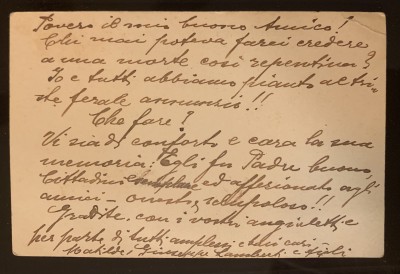 Povero il mio buono Amico!
Chi mai poteva farci credere
a una morte così repentina?
Io e tutti abbiamo pianto al tri-
ste ferale annunzio!!
Che fare?
Vi sia di conforto e cara la sua
memoria: Egli fu Padre buono,
Cittadino esemplare ed affezionato agli
amici – onesto, scrupoloso!!
Gradite, con i vostri angioletti e
per parte di tutti, amplessi
Matilde, Giuseppe Lamberti e figli